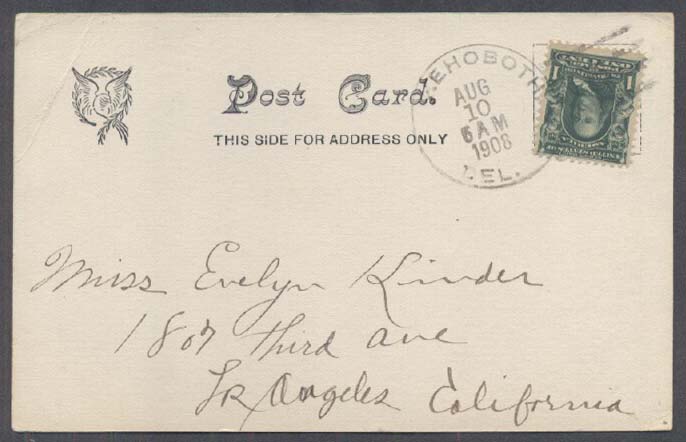 Post Card.
THIS SIDE FOR ADDRESS ONLY
REHOBOTH
AUG
10
6 AM
1908
DEL.
1 1
Miss Evelyn Kinder
1807 Third ave
Los Angeles California